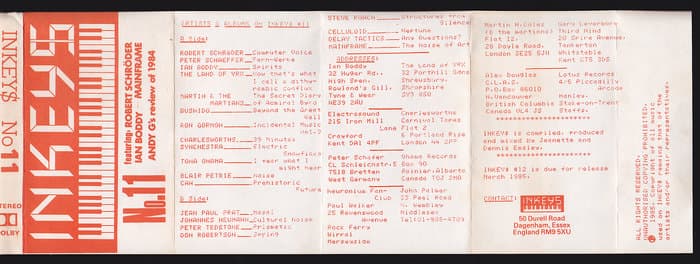 INKEY$ No 11
STEREO
DOLBY
INKEYS
No.11
featuring ROBERT SCHRÖDER
IAN BODDY MAINFRAME
ANDY G's review of 1984
ARTISTS & ALBUMS ON INKEY$ #11
A Side:
ROBERT SCHRöDER Computer Voice
PETER SCHAEFER Fern-Werte
IAN BODDY Spirits
THE LAND OF YRX Now that's what
I call a other-
MARTIN & THE The Secret Diary
MARTIANS of Admiral Byrd
BUSHIDO Beyond the Great
Wall
RON GORMON Incidental Music
Vol.2
CHARLESWORTHS 39 Minutes
SYNCHESTRA Electric
Snowflake
TONA OHAMA I fear what I
might hear
BLAIR PETRIE Noise
CAH Prehistoric
Future
B Side:
JEAN PAUL PRAT Masal
JOHANNES HEUMANN Cultural Noise
PETER TEDSTONE Prismatic
DON ROBERTSON Spring
STEVE ROACH Structures from
Silence
CELLULOID Neptune
DELAY TACTICS Any Questions?
MAINFRAME The Noise of Art
ADDRESSES:
Ian Boddy
32 Huger Rd.,
High Spen,
Rowland's Gill,
Tyne & Wear
NE39 2AU
The Land of YRX
32 Porthill Gdns
Shrewsbury,
Shropshire
SY3 8SQ
Electrosound
215 Iron Mill
Lane
Crawford
Kent DA1 4PF
Charlesworths
Carnival Tapes
Flat 2
6 Portland Rise
London N4 2PP
Peter Schäfer
CL Schleicherstr
7518 Bretten
West Germany
Ohama Records
Box 90
Rainier-Alberta
Canada T0J 2M0
Neuronium Fan-
Club
Paul Weiner
25 Ravenswood
Avenue
Rock Ferry
Wirral
Merseyside
John Palmer
23 Peel Road
N. Wembley
Middlesex
Martin H.Coles
(& the martions)
Flat 12,
26 Doyle Road,
London SE25 5JN
Gary Leverborg
Third Mind
20 Spire Avenue,
Tankerton
Whitstable
Kent CT5 3DS
Alex Douglas
C.L.E.M.
P.O.Box 86010
N.Vancouver
British Columbia
Canada VL4 J5
Lotus Records
4-6 Piccadilly
Arcade
Hanley,
Stoke-on-Trent
INKEY$ is compiled, produced
and mixed by Jeanette and
Dennis Emsley.
INKEY$ #12 is due for release
March 1985.
CONTACT:
INKEYS
50 Durell Road
Dagenham, Essex
England RM9 5XU
ALL RIGHTS RESERVED.
UNAUTHORISED COPYING PROHIBITED.
© 1985. Copyright of all music
used on INKEY$ remains that of the
artists and/or their representatives.